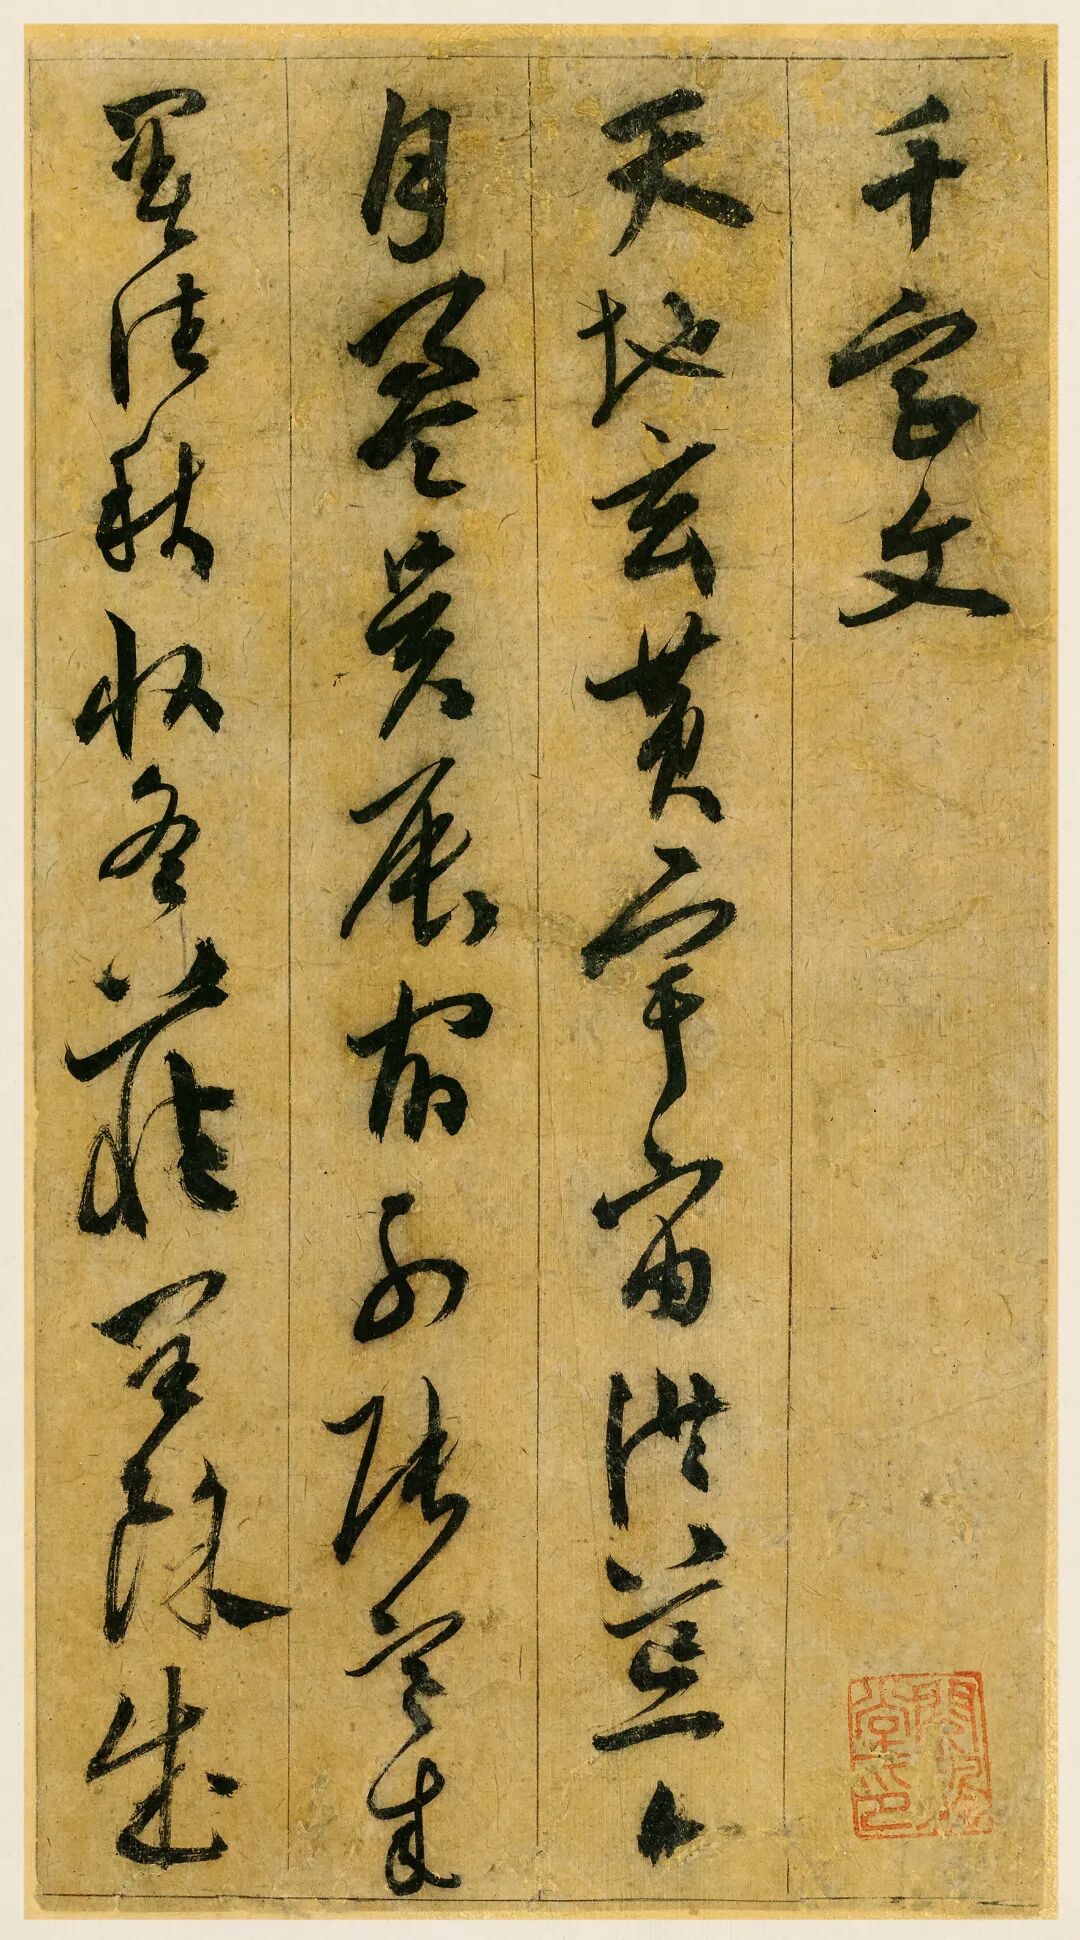 千字文
天地玄黄宇宙洪荒日
月盈昃辰宿列張寒来
暑往秋收冬藏閏餘成